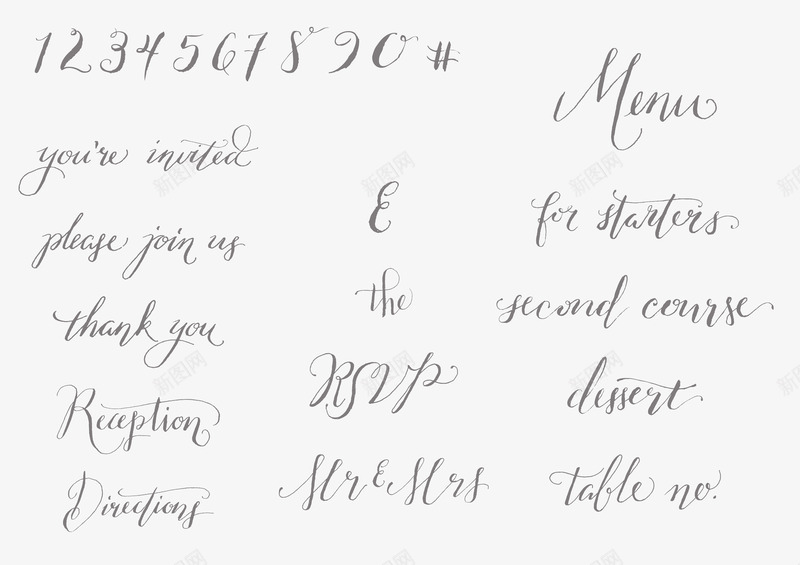 1 2 3 4 5 6 7 8 9 0 #
you're invited
please join us
thank you
Reception
Directions
&
the
RSVP
Mr & Mrs
Menu
for starters.
second course
dessert
table no.
新图网